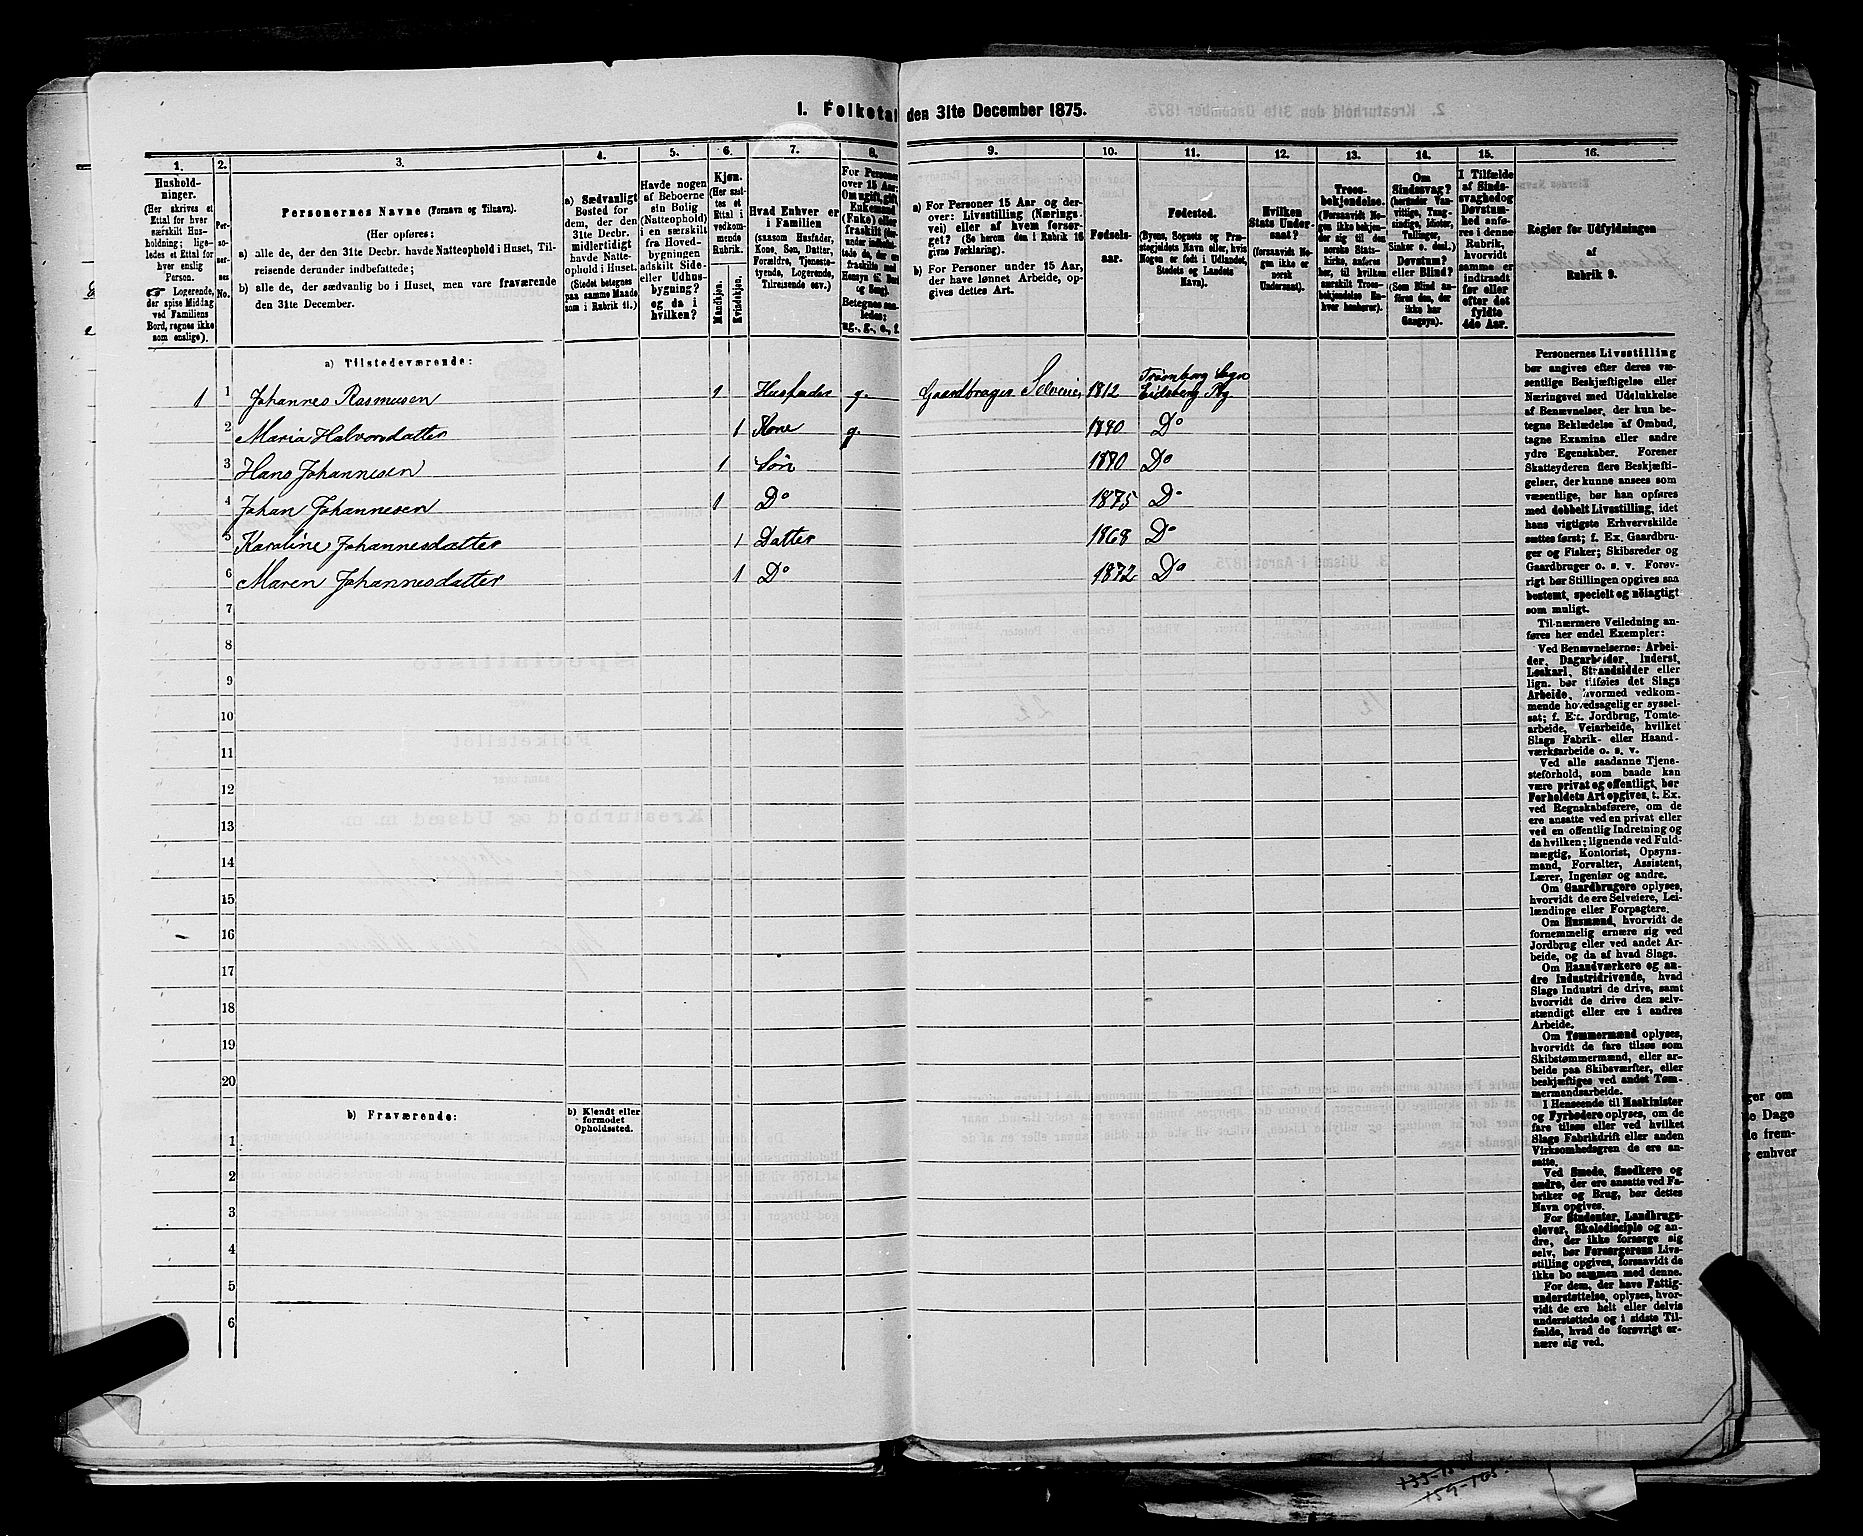 1. Folketal den 31te December 1875.
1. 2. 3. 4. 5. 6. 7. 8. 9. 10. 11. 12. 13. 14. 15. 16.
Hushold-
ninger.
(Her skrives et
Ettal for hver
særskilt Hus-
holdning; lige-
ledes et Ettal for
hver enslig
Person.
Logerende,
der spise Middag
ved Familiens
Bord, regnes ikke
som enslige).
Per-
so-
ner-
nes
No.
Personernes Navne (Fornavn og Tilnavn).
(Her opføres:
a) alle de, der den 31te Decbr. havde Natteophold i Huset, Til-
reisende derunder indbefattede;
b) alle de, der sædvanlig bo i Huset, men vare fraværende
den 31te December.
a) Sædvanligt
Bosted for
dem, der den
31te Decbr.
midlertidigt
havde Natte-
ophold i Huset.
(Stedet betegnes
paa samme Maade
som i Rubrik 11.)
Havde nogen
af Beboerne
sin Bolig
(Natteophold)
i en særskilt
fra Hoved-
bygningen
adskilt Side-
eller Udhus-
bygning?
og da i
hvilken?
Kjøn.
(Her sæt-
tes et
Ettal i
vedkom-
mende
Rubrik.
Mandkjøn.
Kvindekjøn.
Hvad Enhver er
i Familien
(saasom Husfader,
Kone, Søn, Datter,
Forældre, Tjeneste-
tyende, Logerende,
Tilreisende osv.)
For Personer
over 15 Aar:
Om ugift, gift,
Enkemand
(Enke) eller
fraskilt
Betegnes saa-
ledes:
ug., g., e., f.
a) For Personer 15 Aar og der-
over: Livsstilling (Nærings-
vei) eller af hvem forsør-
get? (Se herom den i Rubrik 16
givne Forklaring).
b) For Personer under 15 Aar,
der have lønnet Arbeide, op-
gives dettes Art.
Fødsels-
aar.
Fødested.
(Byens, Sognets og Præ-
stegjeldets Navn eller, hvis
Nogen er født i Udlandet,
Stedets og Landets
Navn).
Hvilken
Stats Under-
saat?
(forsaavidt No-
gen ikke er
norsk
Undersaat).
Troes-
bekjendelse.
(Forsaavidt No-
gen ikke bekjen-
der sig til den
norske Stats-
kirke, anføres
her, til hvilken
særskilt Troes-
bekjendelse En-
hver henhører).
Om
Sindssvag?
(herunder Van-
vittige, Tung-
sindige, Idioter,
Tullinger,
Sinker o. desl.)
Døvstum?
eller Blind?
(Som Blind an-
føres den, der
ikke har
Gangsyn).
I Tilfælde
af Sinds-
svaghed og
Døvstum-
hed anfø-
res i denne
Rubrik,
hvorvidt
samme er
indtraadt
før eller
efter det
fyldte
4de Aar.
Regler for Udfyldningen
af
Rubrik 9.
a) Tilstedeværende:
1 1 Johannes Rasmusen 1 Husfader g. Gaardbruger Selveier 1812 Trømborg Sogn Eidsberg Pg.
2 Maria Halvorsdatter 1 Kone g. 1840 Do
3 Hans Johannesen 1 Søn 1870 Do
4 Johan Johannesen 1 Do 1875 Do
5 Karoline Johannesdatter 1 Datter 1868 Do
6 Maren Johannesdatter 1 Do 1872 Do
7
8
9
10
11
12
13
14
15
16
17
18
19
20
b) Fraværende:
b) Kjendt eller
formodet
Opholdssted.
1
2
3
4
5
6
Personernes Livsstilling
bør angives efter deres væ-
sentlige Beskjæftigelse eller
Næringsvei med Udelukkelse
af Benævnelser, der kun be-
tegne Beklædelse af Ombud,
tagne Examina eller andre
ydre Egenskaber. Forener
Skatteyderen flere Beskjæfti-
gelser, der kunne ansees som
væsentlige, bør han opføres
med dobbelt Livsstilling, idet
hans vigtigste Erhvervskilde
sættes først; f. Ex. Gaardbru-
ger og Fisker; Skibsreder og
Gaardbruger o. s. v. Forøv-
rigt bør Stillingen opgives saa
bestemt, specielt og nöiagtigt
som muligt.
Til nærmere Veiledning an-
føres her endel Exempler:
Ved Benævnelserne: Arbei-
der, Dagarbeider, Inderst,
Løskarl, Strandsidder eller
lign. bør tilføies det Slags
Arbeide, hvormed vedkom-
mende hovedsagelig er syssel-
sat; f. Ex. Jordbrug, Tomte-
arbeide, Veiarbeide, hvilket
Slags Fabrik- eller Haand-
værksarbeide o. s. v.
Ved alle saadanne Tjene-
steforhold, som baade kan
være privat og offentligt, bør
Forholdets Art opgives, t. Ex.
ved Regnskabsførere, om de
ere ansatte ved en privat eller
ved en offentlig Indretning og
da hvilken; lignende ved Fuld-
mægtig, Kontorist, Opsyns-
mand, Forvalter, Assistent,
Lærer, Ingeniør og andre.
Om Gaardbrugere oplyses,
hvorvidt de ere Selveiere, Lei-
lændinge eller Forpagtere.
Om Husmænd, hvorvidt de
fornemmelig ernære sig ved
Jordbrug eller ved andet Ar-
beide, og da af hvad Slags.
Om Haandværkere og an-
dre Industridrivende, hvad
Slags Industri de drive, samt
hvorvidt de drive den selv-
stændigt eller ere i andres
Arbeide.
Om Tømmermænd oplyses,
hvorvidt de fare tilsøs som
Skibstømmermænd, eller ar-
beide paa Skibsværfter, eller
beskjæftiges ved andet Tøm-
mermandsarbeide.
I Henseende til Maskinister
og Fyrbødere oplyses, om de
fare tilsøs eller ved hvilket
Slags Fabrikdrift eller anden
Virksomhedsgren de ere an-
satte.
Ved Smede, Snedkere og
andre, der ere ansatte ved Fa-
briker og Brug, bør dettes
Navn opgives.
For Studenter, Landbrugs-
elever, Skoledisciple og an-
dre, der ikke forsørge sig
selv, bør Forsørgerens Livs-
stilling opgives, forsaavidt de
ikke bo sammen med denne.
For dem, der have Fattig-
understøttelse, oplyses, hvor-
vidt de ere helt eller delvis
understøttede og i sidste Til-
fælde, hvad de forøvrigt er-
nære sig ved.
ger om
e Dage
de frem-
enhver
159-165.